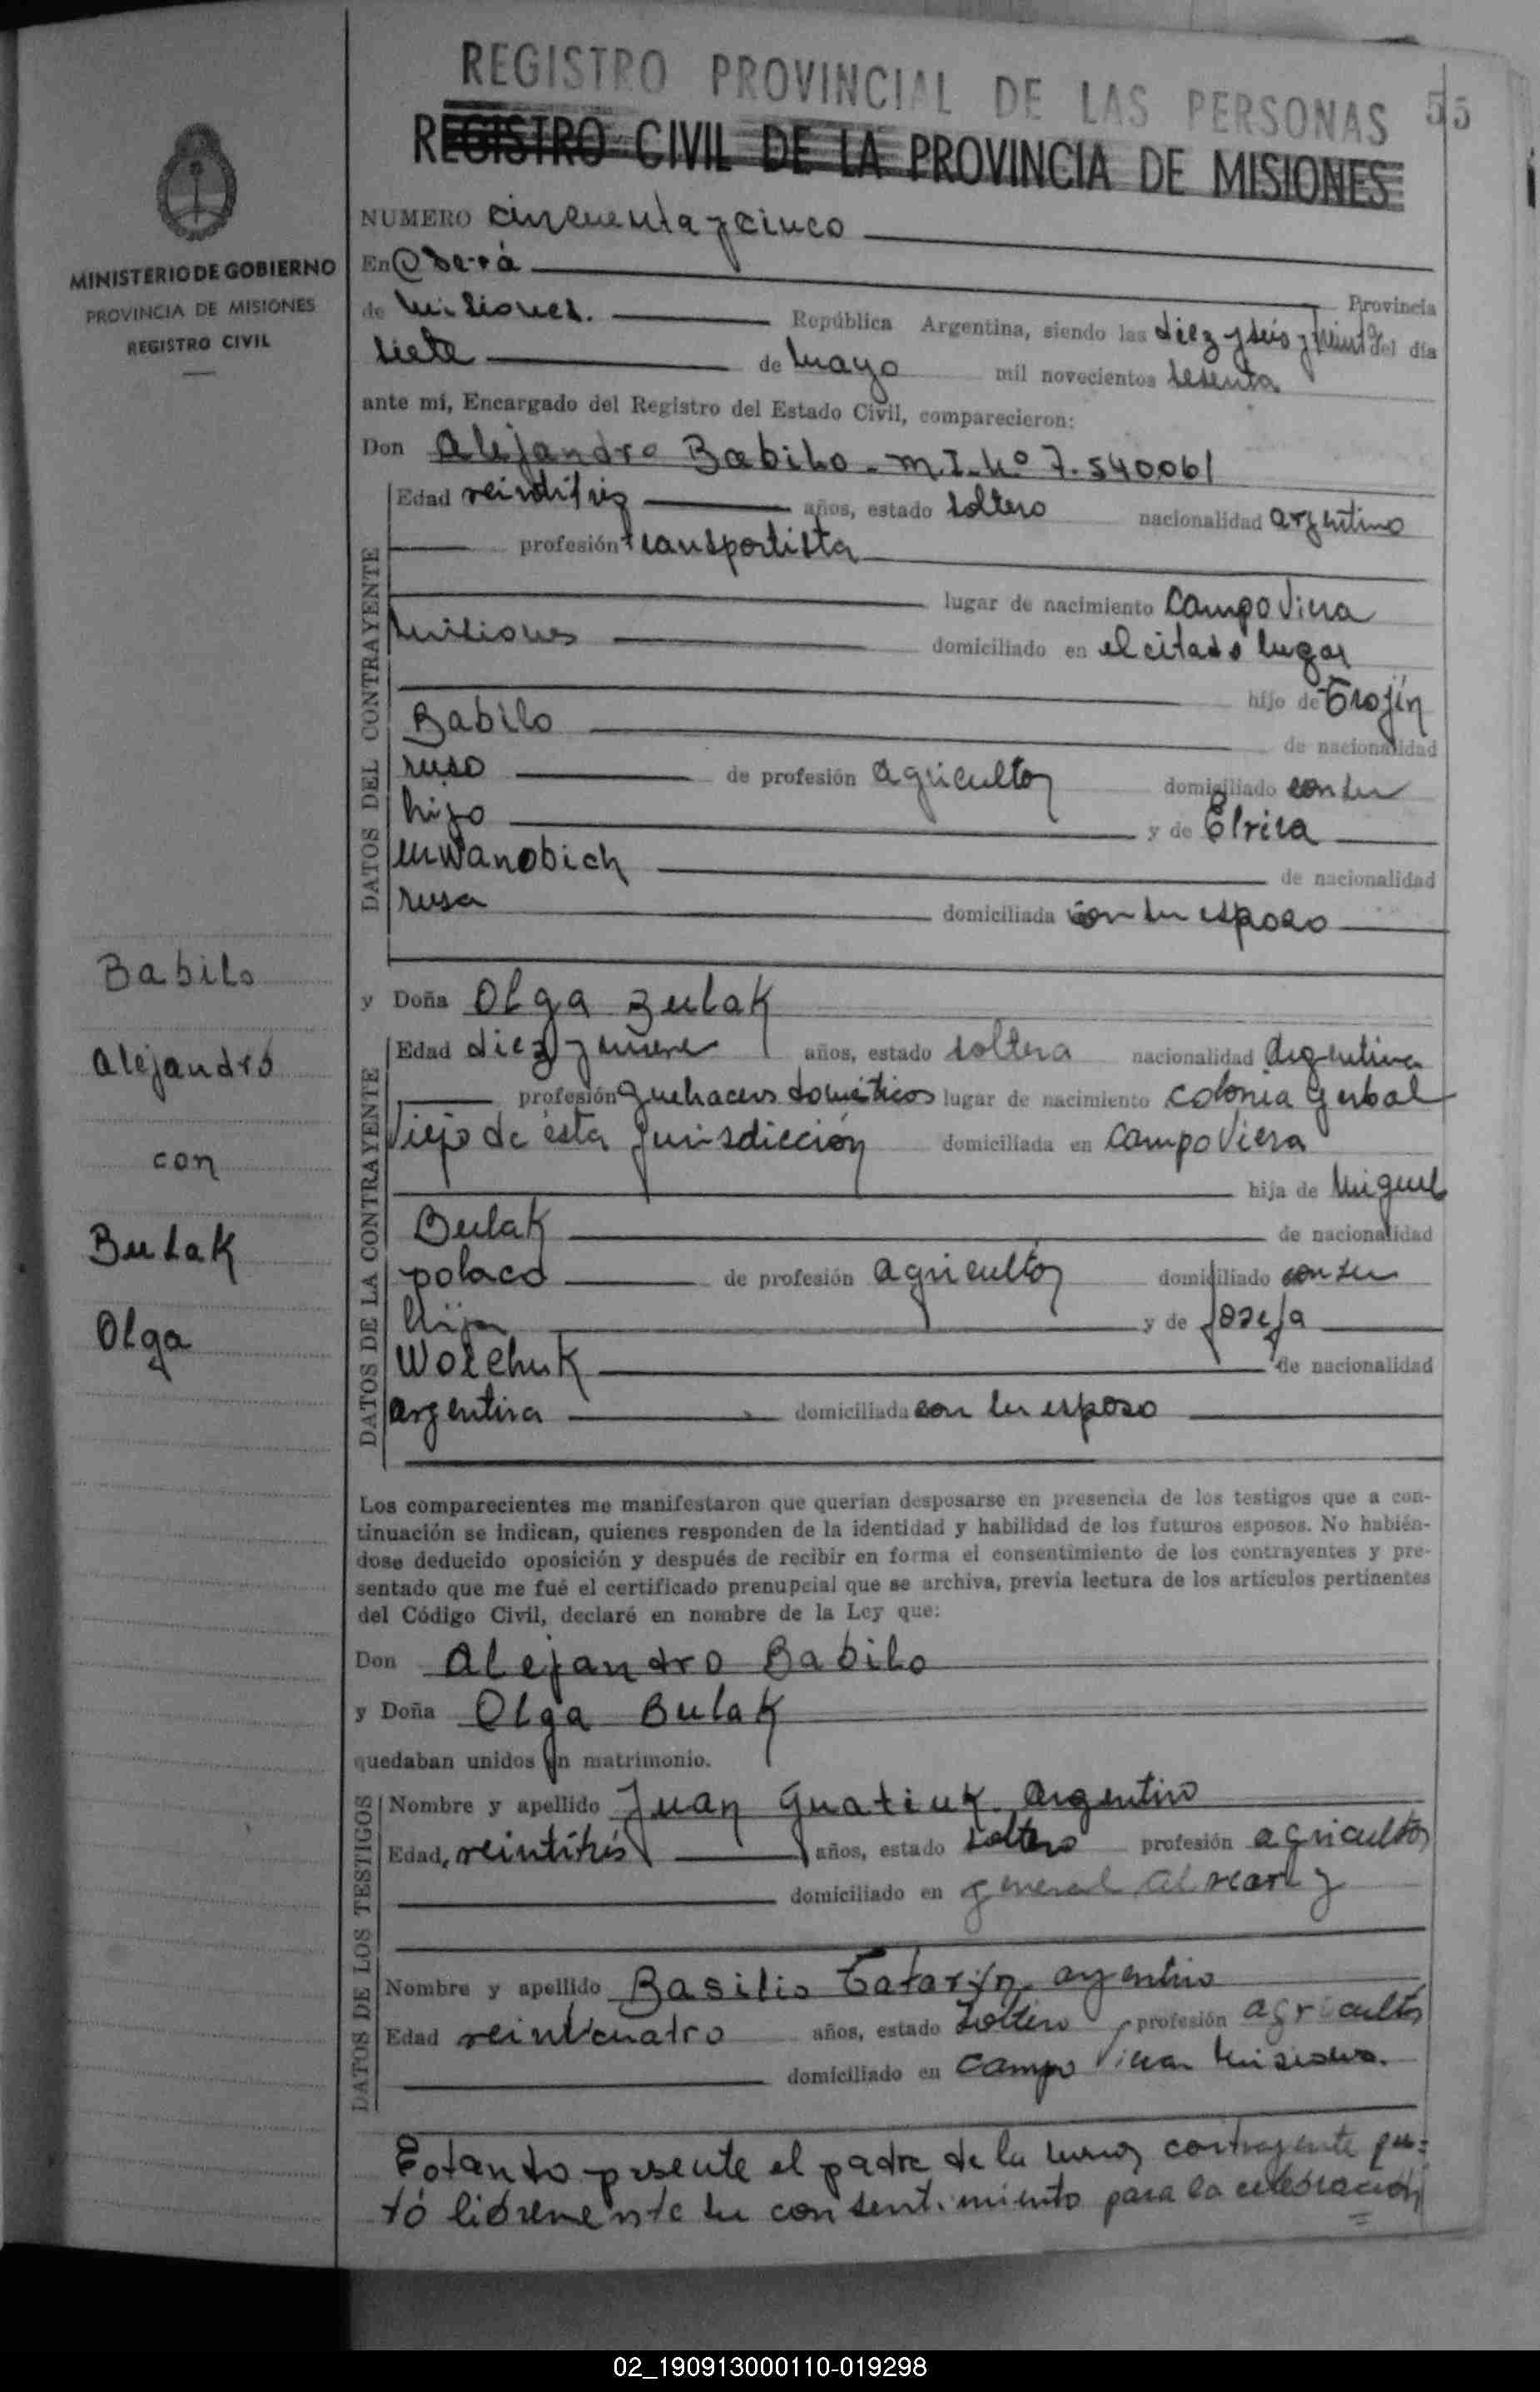 REGISTRO PROVINCIAL DE LAS PERSONAS 55
REGISTRO CIVIL DE LA PROVINCIA DE MISIONES
MINISTERIO DE GOBIERNO
PROVINCIA DE MISIONES
REGISTRO CIVIL
Babilo
Alejandro
con
Bulak
Olga
NUMERO cincuenta y cinco
En Oberá Provincia
de Misiones. República Argentina, siendo las diez y seis y treinta del día
siete de Mayo mil novecientos sesenta
ante mí, Encargado del Registro del Estado Civil, comparecieron:
Don Alejandro Babilo - M.I. Nº 7.540.061
DATOS DEL CONTRAYENTE
Edad años, estado soltero nacionalidad argentino
profesión transportista
lugar de nacimiento Campo Viera
Misiones domiciliado en el citado lugar
hijo de Trojín
Babilo de nacionalidad
ruso de profesión agricultor domiciliado con su
hijo y de
de nacionalidad
rusa domiciliada con su esposo
y Doña Olga Bulak
DATOS DE LA CONTRAYENTE
Edad diez y nueve años, estado soltera nacionalidad Argentina
profesión quehaceres domésticos lugar de nacimiento colonia Yerbal
Viejo de ésta jurisdicción domiciliada en Campo Viera
hija de Miguel
Bulak de nacionalidad
polaco de profesión agricultor domiciliado con su
hija y de Josefa
Wolchuk de nacionalidad
argentina domiciliada con su esposo
Los comparecientes me manifestaron que querían desposarse en presencia de los testigos que a con-
tinuación se indican, quienes responden de la identidad y habilidad de los futuros esposos. No habién-
dose deducido oposición y después de recibir en forma el consentimiento de los contrayentes y pre-
sentado que me fué el certificado prenupcial que se archiva, previa lectura de los artículos pertinentes
del Código Civil, declaré en nombre de la Ley que:
Don Alejandro Babilo
y Doña Olga Bulak
quedaban unidos en matrimonio.
DATOS DE LOS TESTIGOS
Nombre y apellido Juan Gnatiuk Argentino
Edad veintitrés años, estado soltero profesión agricultor
domiciliado en general Alvear
Nombre y apellido Basilio Tatarin, argentino
Edad veinticuatro años, estado soltero profesión agricultor
domiciliado en Campo Viera Misiones.
Estando presente el padre de la menor contrayente pres=
tó libremente su consentimiento para la celebración
=
02_190913000110-019298